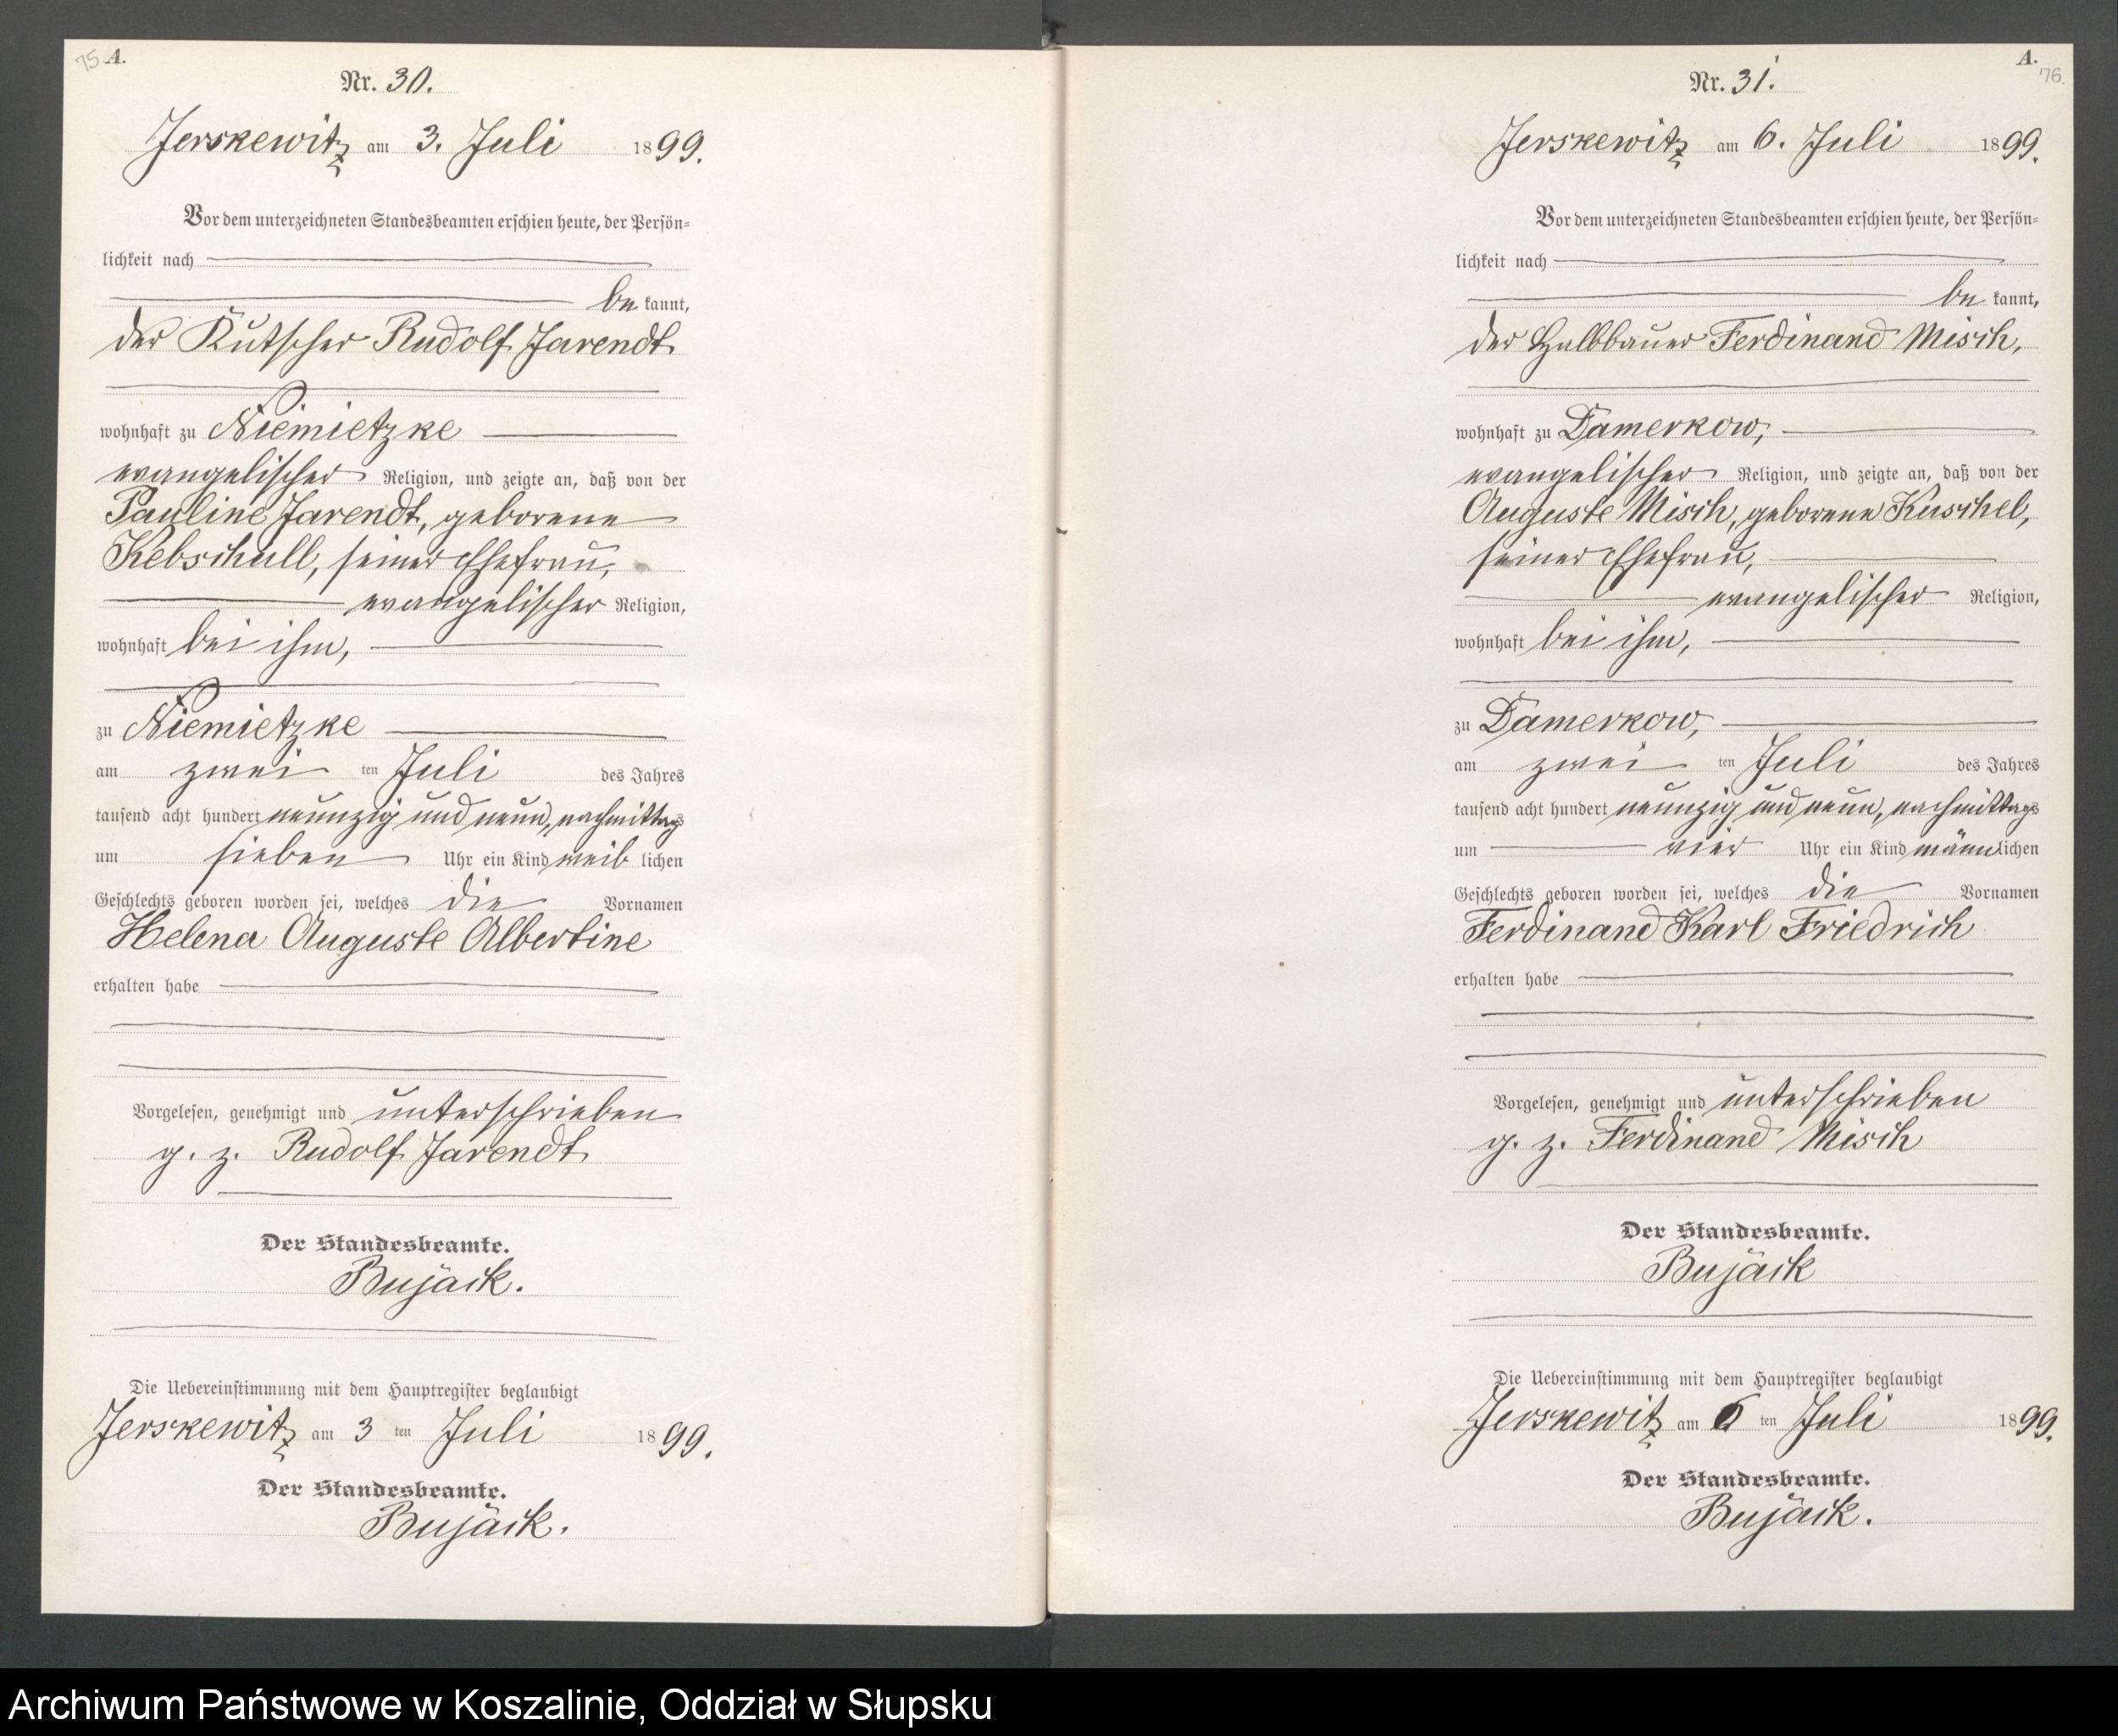 75 A.
Nr. 30.
Jerskewitz am 3. Juli 1899.
Vor dem unterzeichneten Standesbeamten erschien heute, der Persön-
lichkeit nach
be kannt,
der Kutscher Rudolf Jarendt
wohnhaft zu Niemietzke
evangelischer Religion, und zeigte an, daß von der
Pauline Jarendt, geborene
Kebschull, seiner Ehefrau,
evangelischer Religion,
wohnhaft bei ihm,
zu Niemietzke
am zwei ten Juli des Jahres
tausend acht hundert neunzig und neun, nachmittags
um sieben Uhr ein Kind weib lichen
Geschlechts geboren worden sei, welches die Vornamen
Helena Auguste Albertine
erhalten habe
Vorgelesen, genehmigt und unterschrieben
g. z. Rudolf Jarendt
Der Standesbeamte.
Bujack.
Die Uebereinstimmung mit dem Hauptregister beglaubigt
Jerskewitz am 3 ten Juli 1899.
Der Standesbeamte.
Bujack.
A.
76.
Nr. 31.
Jerskewitz am 6. Juli 1899.
Vor dem unterzeichneten Standesbeamten erschien heute, der Persön-
lichkeit nach
be kannt,
der Halbbauer Ferdinand Misch,
wohnhaft zu Damerkow,
evangelischer Religion, und zeigte an, daß von der
Auguste Misch, geborene Kuschel,
seiner Ehefrau,
evangelischer Religion,
wohnhaft bei ihm,
zu Damerkow,
am zwei ten Juli des Jahres
tausend acht hundert neunzig und neun, nachmittags
um vier Uhr ein Kind männlichen
Geschlechts geboren worden sei, welches die Vornamen
Ferdinand Karl Friedrich
erhalten habe
Vorgelesen, genehmigt und unterschrieben
g. z. Ferdinand Misch
Der Standesbeamte.
Bujack
Die Uebereinstimmung mit dem Hauptregister beglaubigt
Jerskewitz am 6 ten Juli 1899.
Der Standesbeamte.
Bujack.
Archiwum Państwowe w Koszalinie, Oddział w Słupsku